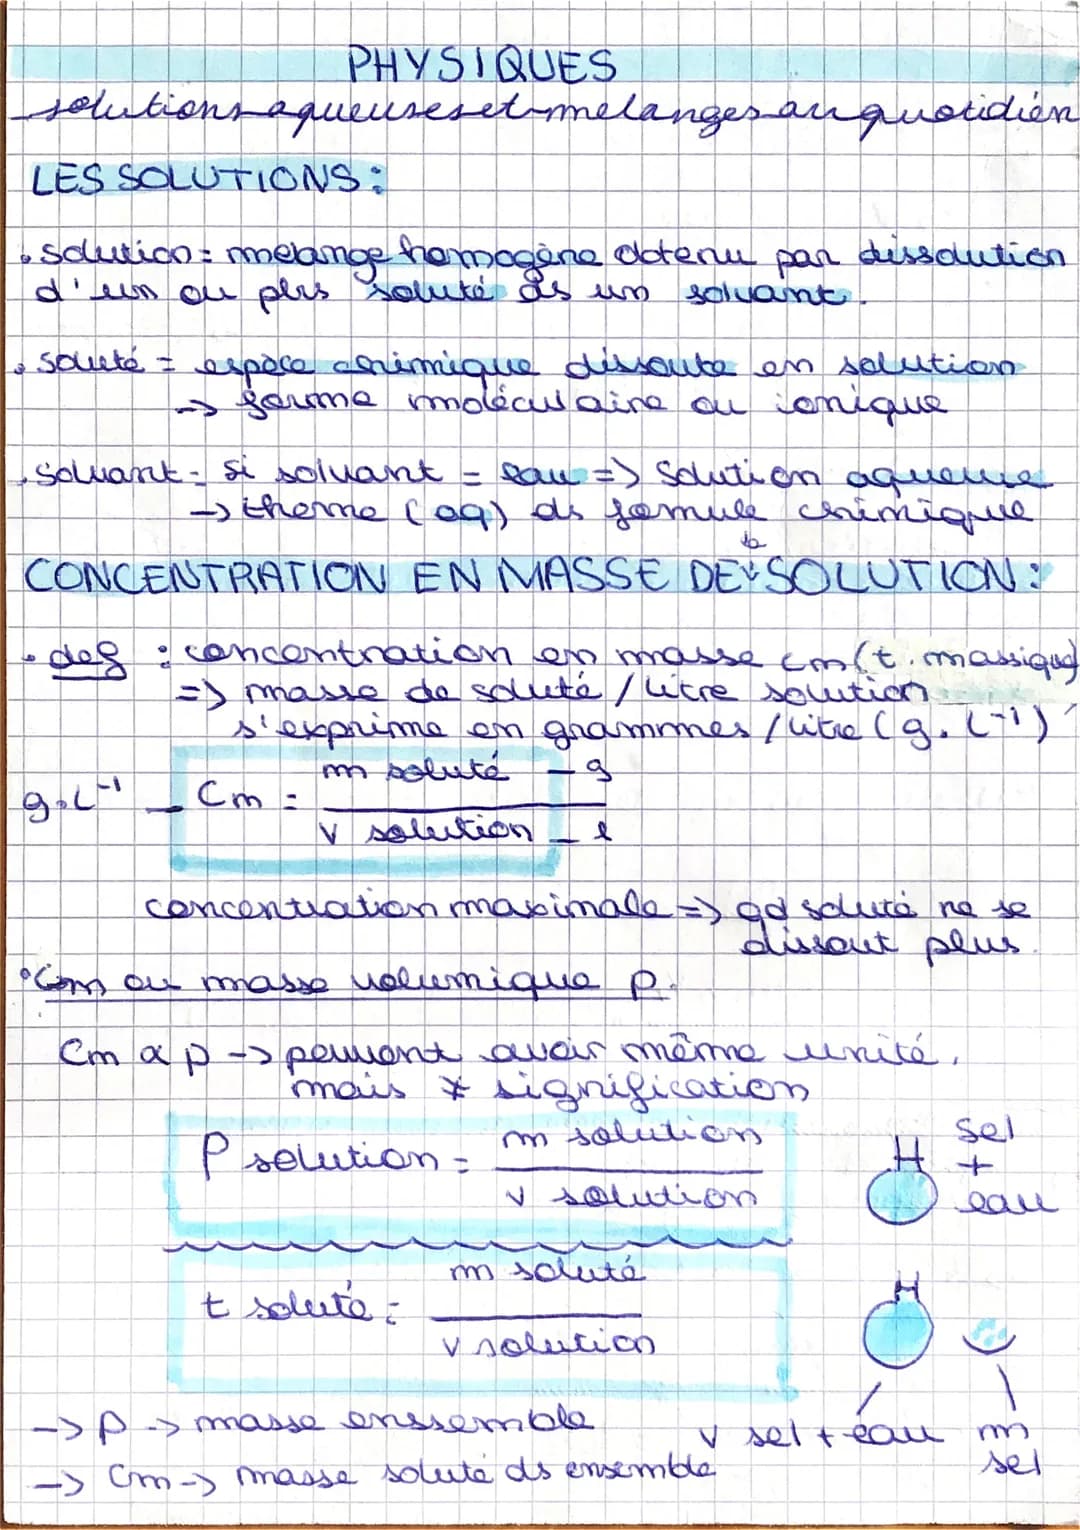 PHYSIQUES
solutions aqueuses et mélanges au quotidien
LES SOLUTIONS :
• solution = mélange homogène obtenu par dissolution
d'un ou plrs soluté ds un solvant.
• soluté = espèce chimique dissoute en solution
-> forme moléculaire ou ionique
• solvant = si solvant = eau => solution aqueuse
-> therme (aq) ds formule chimique
CONCENTRATION EN MASSE DE la SOLUTION :
• def : concentration en masse cm (t. massique)
=> masse de soluté / litre solution
s'exprime en grammes / litre (g.L⁻¹)
m soluté - g
g.L⁻¹ - Cm =
v solution - l
concentration maximale => qd soluté ne se
dissout plus.
• Cm ou masse volumique ρ.
Cm α ρ -> peuvent avoir même unité,
mais ≠ signification
ρ solution = m solution
v solution
sel
+
eau
t soluté = m soluté
v solution
-> ρ -> masse enssemble
v sel + eau
m
sel
-> Cm -> masse soluté ds ensemble